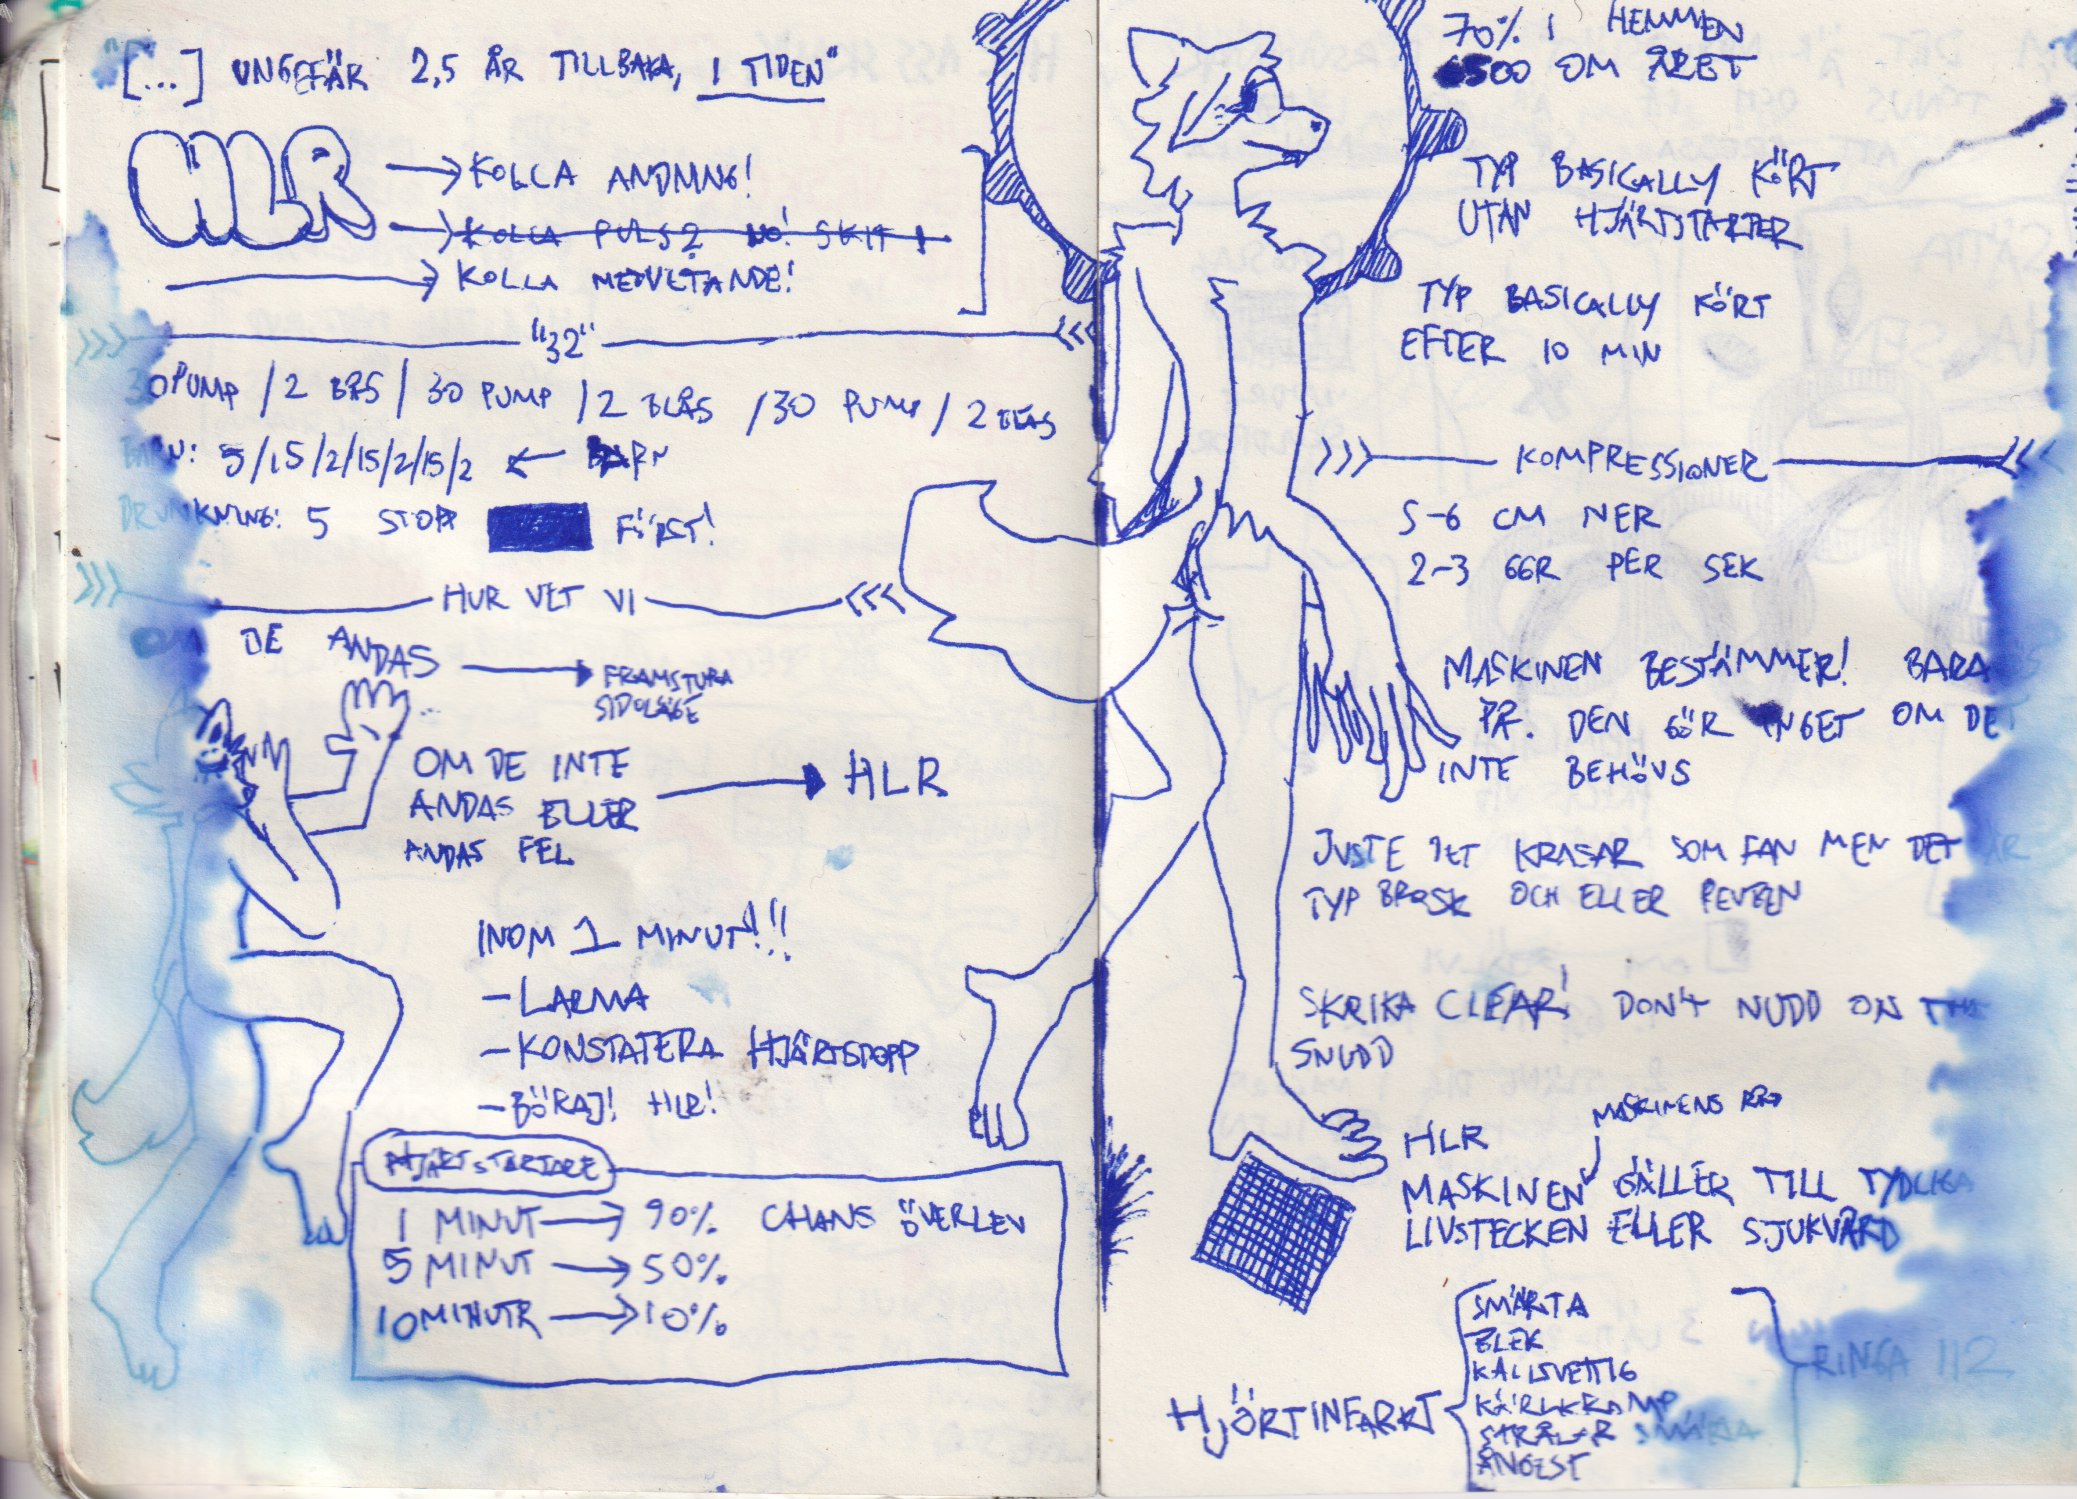 [...] UNGEFÄR 2,5 ÅR TILLBAKA, I TIDEN"
HLR
KOLLA ANDNING!
KOLLA PULS? NÖ! SKIT!
KOLLA MEDVETANDE!
"32"
30 PUMP / 2 BLÅS / 30 PUMP / 2 BLÅS / 30 PUMP / 2 BLÅS
BARN: 5/15/2/15/2/15/2 BARN
DRUNKNING: 5 STOPP FÖRST!
HUR VET VI
OM DE ANDAS
FRAMSTUPA
SIDOLÄGE
OM DE INTE
ANDAS ELLER
ANDAS FEL
HLR
INOM 1 MINUT!!!
- LARMA
- KONSTATERA HJÄRTSTOPP
- BÖRAJ! HLR!
HJÄRTSTARTARE
1 MINUT 90% CHANS ÖVERLEV
5 MINUT 50%
10 MINUTR 10%
70% I HEMMEN
6500 OM ÅRET
TYP BASICALLY KÖRT
UTAN HJÄRTSTARTER
TYP BASICALLY KÖRT
EFTER 10 MIN
KOMPRESSIONER
5-6 CM NER
2-3 GGR PER SEK
MASKINEN BESTÄMMER! BARA
PÅ. DEN GÖR INGET OM DET
INTE BEHÖVS
JUSTE DET KRASAR SOM FAN MEN DET ÄR
TYP BROSK OCH ELLER REVBEN
SKRIKA CLEAR! DON'T NUDD ON THE
SNUDD
MASKINENS RÅD
HLR
MASKINEN GÄLLER TILL TYDLIGA
LIVSTECKEN ELLER SJUKVÅRD
HJÖRTINFARKT
SMÄRTA
BLEK
KALLSVETTIG
KÄRLKRAMP
STRÅLAR SMÄRTA
ÅNGEST
RINGA 112